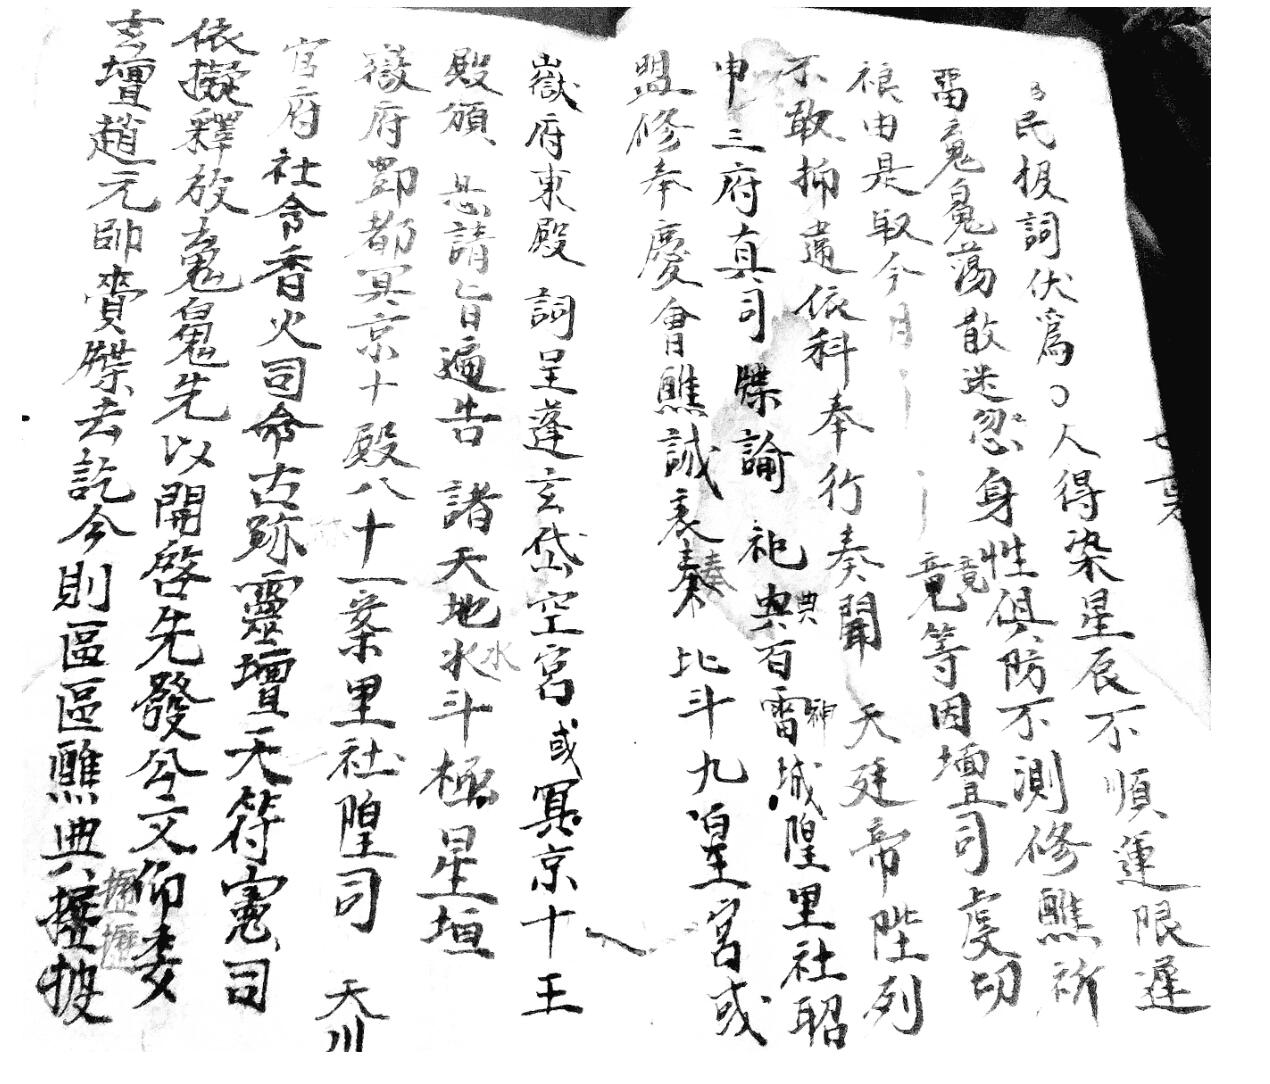 民投詞伏爲人得染星辰不順運限遲
留魂魄蕩散迷忽身性俱防不測修醮祈
禳由是取今月 竟等因壇司虔切
不敢抑違依科奉行奏聞 天廷帝陛列
申 三府真司 牒諭 祀典百神城隍里社昭
盟修奉慶會醮誠表奏 北斗九皇宮或
嶽府東殿 詞呈蓬玄岱空宮或冥京十王
殿頒 恩請旨遍告 諸天地水斗極星垣
嶽府酆都冥京十殿八十一案里社隍司 天川
官府社令香火司命古跡靈壇天符憲司
依擬釋放魂魄先以開啓先發公文仰委
玄壇趙元帥賫牒去訖今則區區醮典擬披